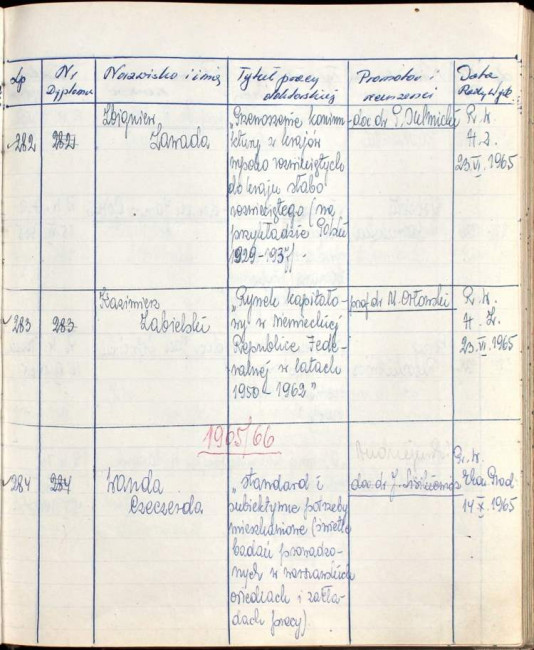 Lp
Nr
Dyplomu
Nazwisko i imię
Tytuł pracy
doktorskiej
Promotor i
recenzenci
Data
Rady Wydz.
282
282
Zbigniew
Zawada
„Przenoszenie koniun-
ktury z krajów
wysoko rozwiniętych
do kraju słabo
rozwiniętego (na
przykładzie Polski
1929-1937)".
doc dr
Pr. W.
H. Z.
23.VI.1965
283
283
Kazimierz
Zabielski
„Rynek kapitało-
wy w Niemieckiej
Republice Fede-
ralnej w latach
1950-1962"
prof dr M. Orłowski
Pr. W.
H. Z.
23.VI.1965
1965/66
284
284
Wanda
Czeczerda
„Standard i
subiektywne potrzeby
mieszkaniowe (świetle
badań prowadzo-
nych w warszawskich
osiedlach i zakła-
dach pracy)
doc dr J.
Pr. W.
Ekon. Prod.
14 X 1965